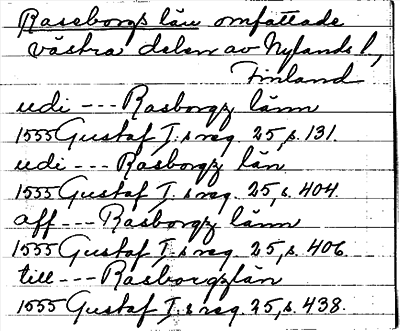 Raseborgs län omfattade
västra delen av Nylands l,
Finland
udi --- Rasborgz länn
1555 Gustaf I:s reg. 25, s. 131.
udi --- Rasborgz län
1555 Gustaf I:s reg. 25, s. 404.
aff --- Rasborgz länn
1555 Gustaf I:s reg. 25, s. 406.
till --- Rasborgzlän
1555 Gustaf I:s reg. 25, s. 438.